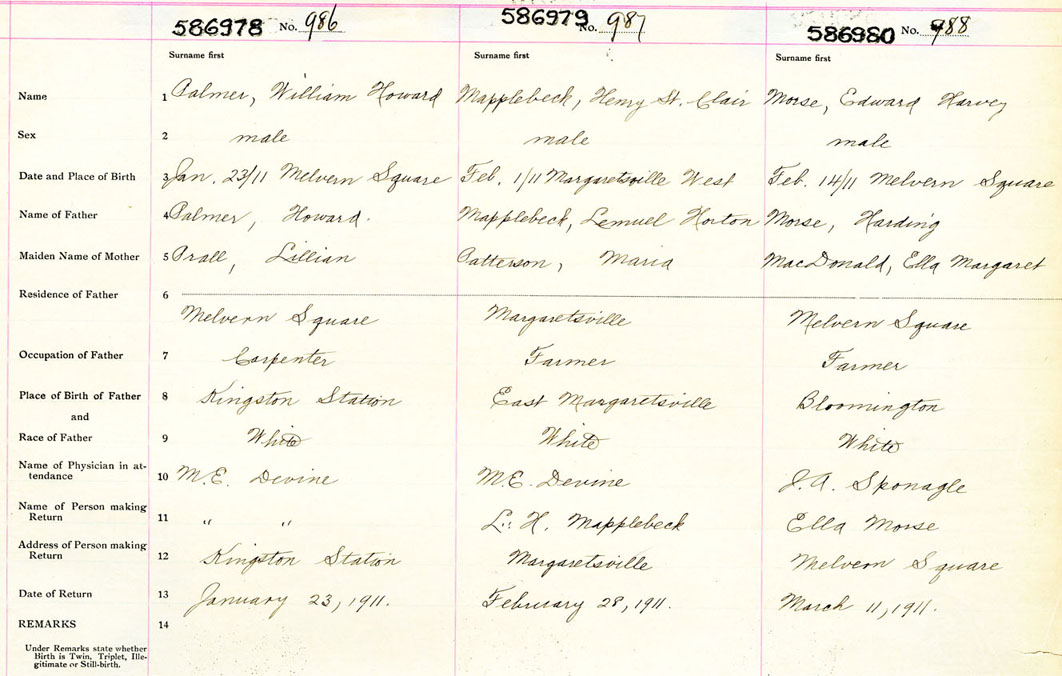 586978 No. 986 586979 No. 987 586980 No. 988
Surname first Surname first Surname first
Name 1 Palmer, William Howard Mapplebeck, Henry St. Clair Morse, Edward Harvey
Sex 2 male male male
Date and Place of Birth 3 Jan. 23/11 Melvern Square Feb. 1/11 Margaretsville West Feb. 14/11 Melvern Square
Name of Father 4 Palmer, Howard. Mapplebeck, Lemuel Horton Morse, Harding
Maiden Name of Mother 5 Prall, Lillian Patterson, Maria MacDonald, Ella Margaret
Residence of Father 6
Melvern Square Margaretsville Melvern Square
Occupation of Father 7 Carpenter Farmer Farmer
Place of Birth of Father 8 Kingston Station East Margaretsville Bloomington
and
Race of Father 9 White White White
Name of Physician in at-
tendance 10 M.E. Devine M.E. Devine J.A. Sponagle
Name of Person making
Return 11 " " L. H. Mapplebeck Ella Morse
Address of Person making
Return 12 Kingston Station Margaretsville Melvern Square
Date of Return 13 January 23, 1911. February 28, 1911. March 11, 1911.
REMARKS 14
Under Remarks state whether
Birth is Twin, Triplet, Ille-
gitimate or Still-birth.